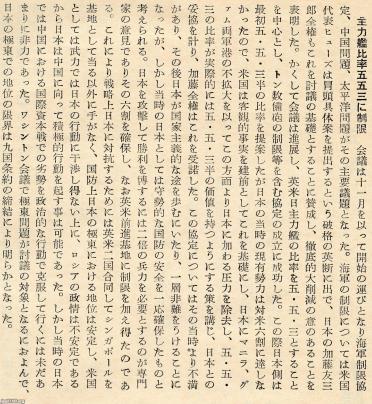 主力艦比率五五三に制限　会議は十一月を以って開始の運びとなり海軍制限協
定、中国問題、太平洋問題がその主要議題となった。海軍の制限については米国
代表ヒューズは冒頭具体案を提出するという破格の英断に出で、日本の加藤友三
郎全権もこれを討議の基礎とすることに賛成し、徹底的大削減の意のあることを
表明した。かくて会議は進展し、英米日主力艦の比率を五・五・三とすること
を中心とし、トン数備砲の制限等を含む協定の成立に成功した。この際日本側は
最初五・五・三半の比率を提案したが日本の当時の現有勢力は対米六割に達しな
かったので、米国は客観的事実を建前としてこれを基礎にし、日本にニラ、グ
アム両軍港の不拡大を以ってこの方面より日本に加わる圧力を除去し、五・五・
三の比率が実際的には五・五・三半の価値を持つようにする策を講じ、日本との
妥協を計り、加藤全権はこれを受諾した。この協定についてはその当時より不満
があり、その後日本が国家主義的な途を歩むにいたり、一層非難をうけることに
なったが、しかし当時の日本としては守勢的な国防の安全を一応確保したものと
考えられる。日本を攻撃して勝利を博するには二倍の兵力を必要とするのが専門
家の意見でありその六割を確保し、なお英米前進基地に制限を加え得たのであ
る。これにより戦時上日本に対抗するためには英米二国合同してシンガポールを
基地として当る以外に手がなく、国防上日本の極東における地位は安定し、米国
としては武力では日本の行動に干渉し得ない上に、ロシアの政情は不安定である
から日本は中国に向って積極的行動を起す事は可能であった。しかし当時の日本
では中国における国際資本戦での劣勢を政治的な行動で克服して行くには未だあ
まりに非力であった。ワシントン会議で極東問題が討議の対象となるにおよんで、
日本の極東での地位の限界は九国条約の締結により明らかとなった。